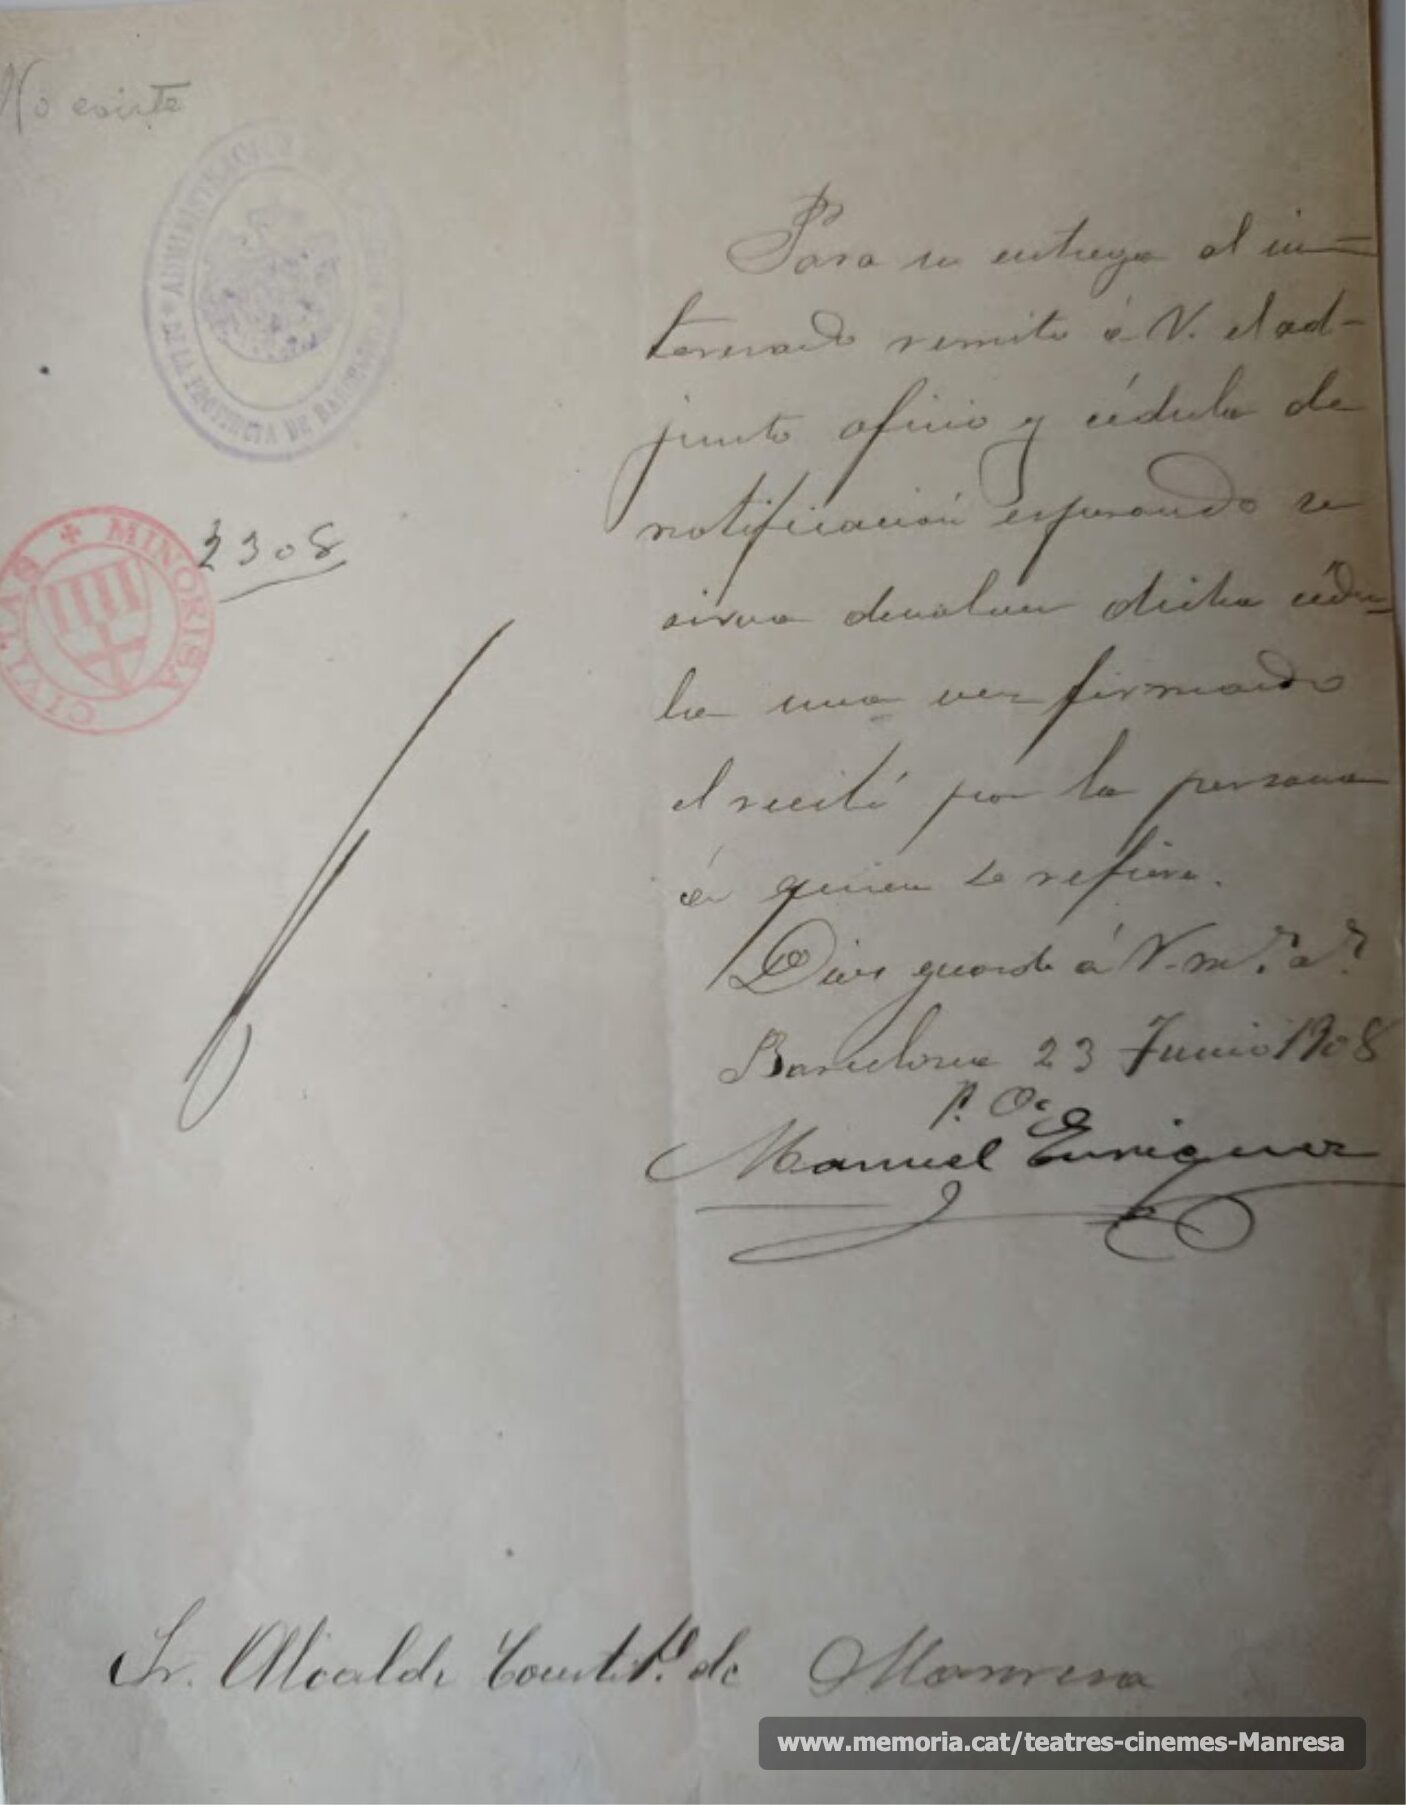 No existe
ADMINISTRACION
DE LA PROVINCIA DE BARCELONA
CIVITAS MINORISA
2308
Para su entrega al in-
teresado remito á V. el ad-
junto oficio y cédula de
notificación esperando se
sirva devolver dicha cédu-
la una vez firmado
el recibí por la persona
á quien se refiere.
Dios guarde á V. m.s a.s
Barcelona 23 Junio 1908
P. O.
Manuel Enriquez
Sr. Alcalde Constit.l de Manresa
www.memoria.cat/teatres-cinemes-Manresa